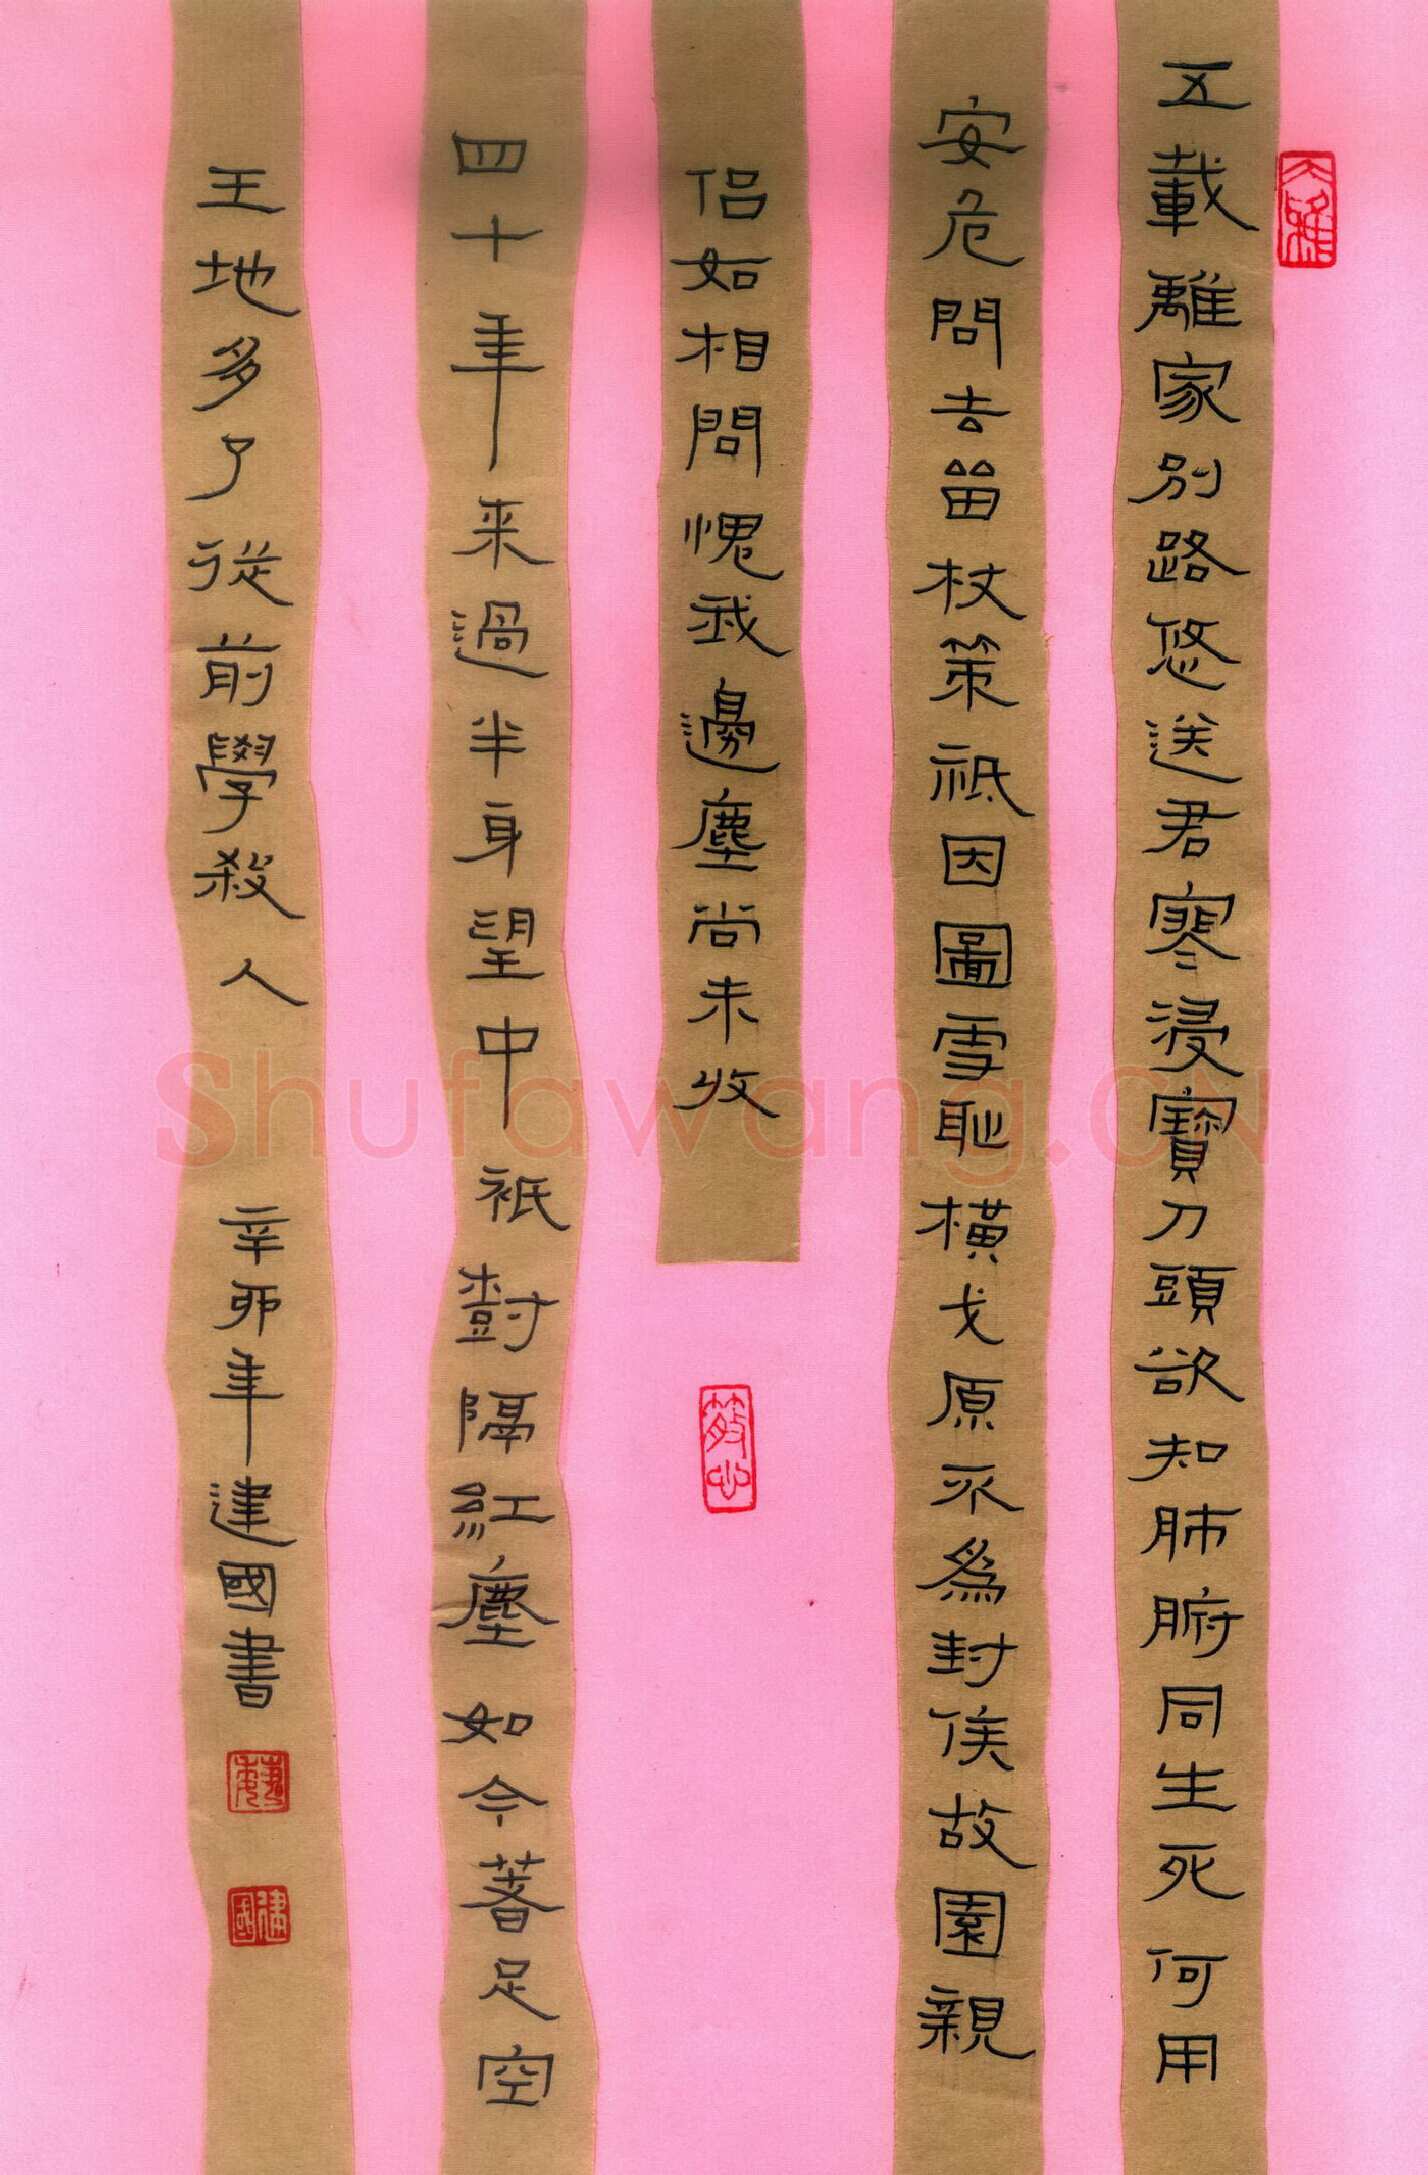 五載離家別路悠送君寒浸寶刀頭欲知肺腑同生死何用
安危問去留杖策祇因圖雪恥橫戈原不爲封侯故園親
侶如相問愧我邊塵尚未收
四十年来過半身望中祇樹隔紅塵如今著足空
王地多了從前學殺人
辛卯年建國書
大雅
建國
Shufawang.CN